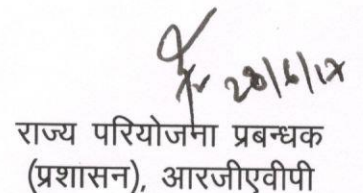 28/6/17
राज्य परियोजना प्रबन्धक
(प्रशासन), आरजीएवीपी